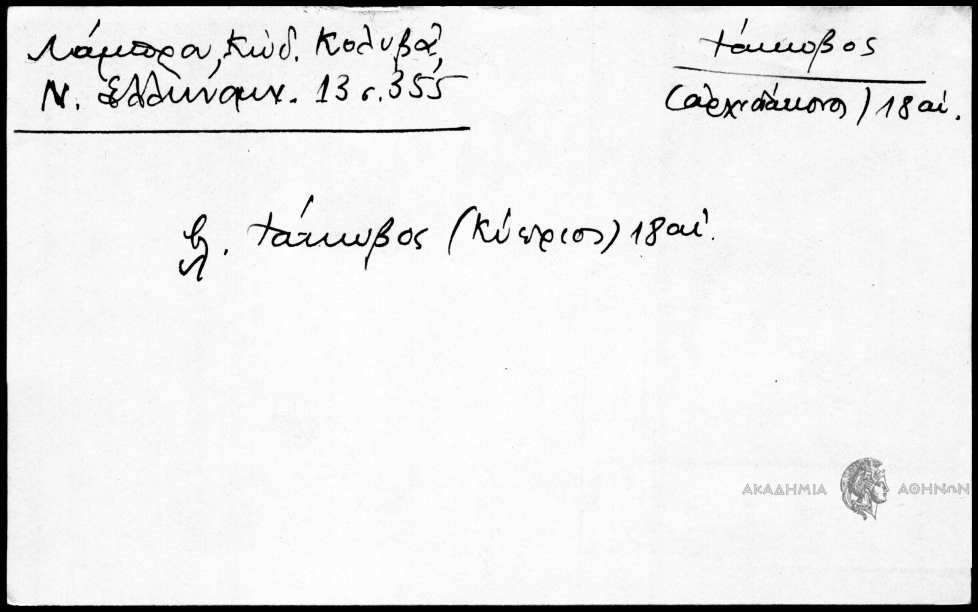 Λάμπρου, Κώδ. Κολυβᾶ,
Ν. Ἑλληνομν. 13 σ. 355
Ἰάκωβος
(ἀρχιδιάκονος) 18 αἰ.
βλ. Ἰάκωβος (Κύπριος) 18 αἰ.
ΑΚΑΔΗΜΙΑ ΑΘΗΝΩΝ